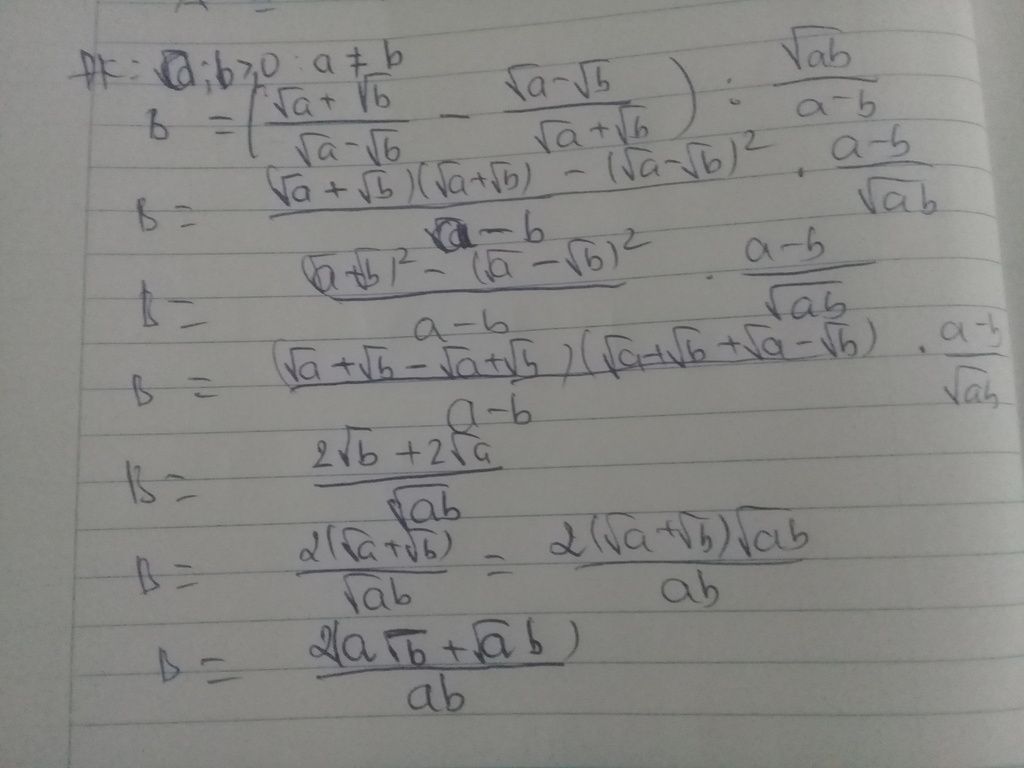 ĐK: a; b ≥ 0; a ≠ b
B = ( (√a + √b)/(√a - √b) - (√a - √b)/(√a + √b) ) : √ab/(a - b)
B = ((√a + √b)(√a + √b) - (√a - √b)²)/(a - b) . (a - b)/√ab
B = ((√a + √b)² - (√a - √b)²)/(a - b) . (a - b)/√ab
B = ((√a + √b - √a + √b)(√a + √b + √a - √b))/(a - b) . (a - b)/√ab
B = (2√b + 2√a)/√ab
B = 2(√a + √b)/√ab = 2(√a + √b)√ab/ab
B = 2(a√b + √a b)/ab